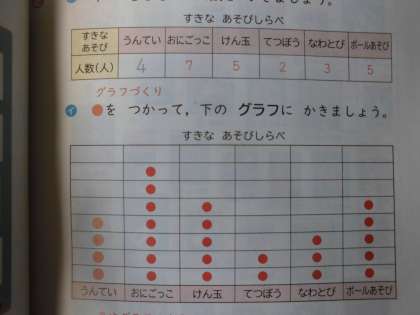 ましょう。
すきな あそびしらべ
すきな あそび うんてい おにごっこ けん玉 てつぼう なわとび ボールあそび
人数(人) 4 7 5 2 3 5
グラフづくり
イ ●を つかって，下の グラフに かきましょう。
すきな あそびしらべ
うんてい おにごっこ けん玉 てつぼう なわとび ボールあそび